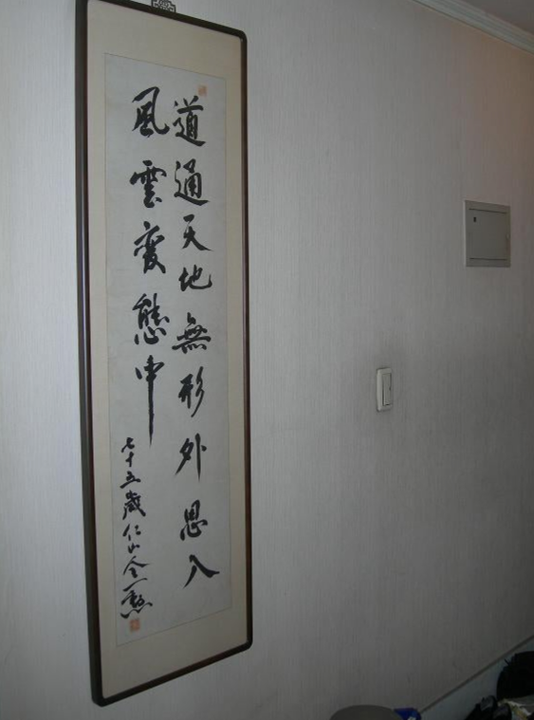 道通天地無形外思入
風雲変態中
七十五歲仁山金一